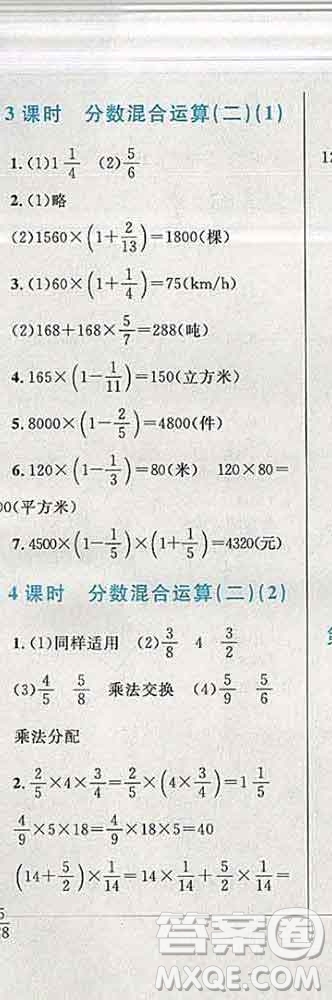 3 课时 分数混合运算(二)(1)
12
1.(1)1 1/4 (2)5/6
2.(1)略
(2)1560×(1+2/13)=1800(棵)
3.(1)60×(1+1/4)=75(km/h)
(2)168+168×5/7=288(吨)
4.165×(1-1/11)=150(立方米)
5.8000×(1-2/5)=4800(件)
6.120×(1-1/3)=80(米) 120×80=
00(平方米)
7.4500×(1-1/5)×(1+1/5)=4320(元)
4 课时 分数混合运算(二)(2)
1.(1)同样适用 (2)3/8 4 3/8
(3)4/5 5/8 乘法交换 (4)5/9 5/6
乘法分配
2. 2/5×4×3/4=2/5×(4×3/4)=1 1/5
4/9×5×18=4/9×18×5=40
(14+5/2)×1/14=14×1/14+5/2×1/14=
答案圈
MXQE.COM